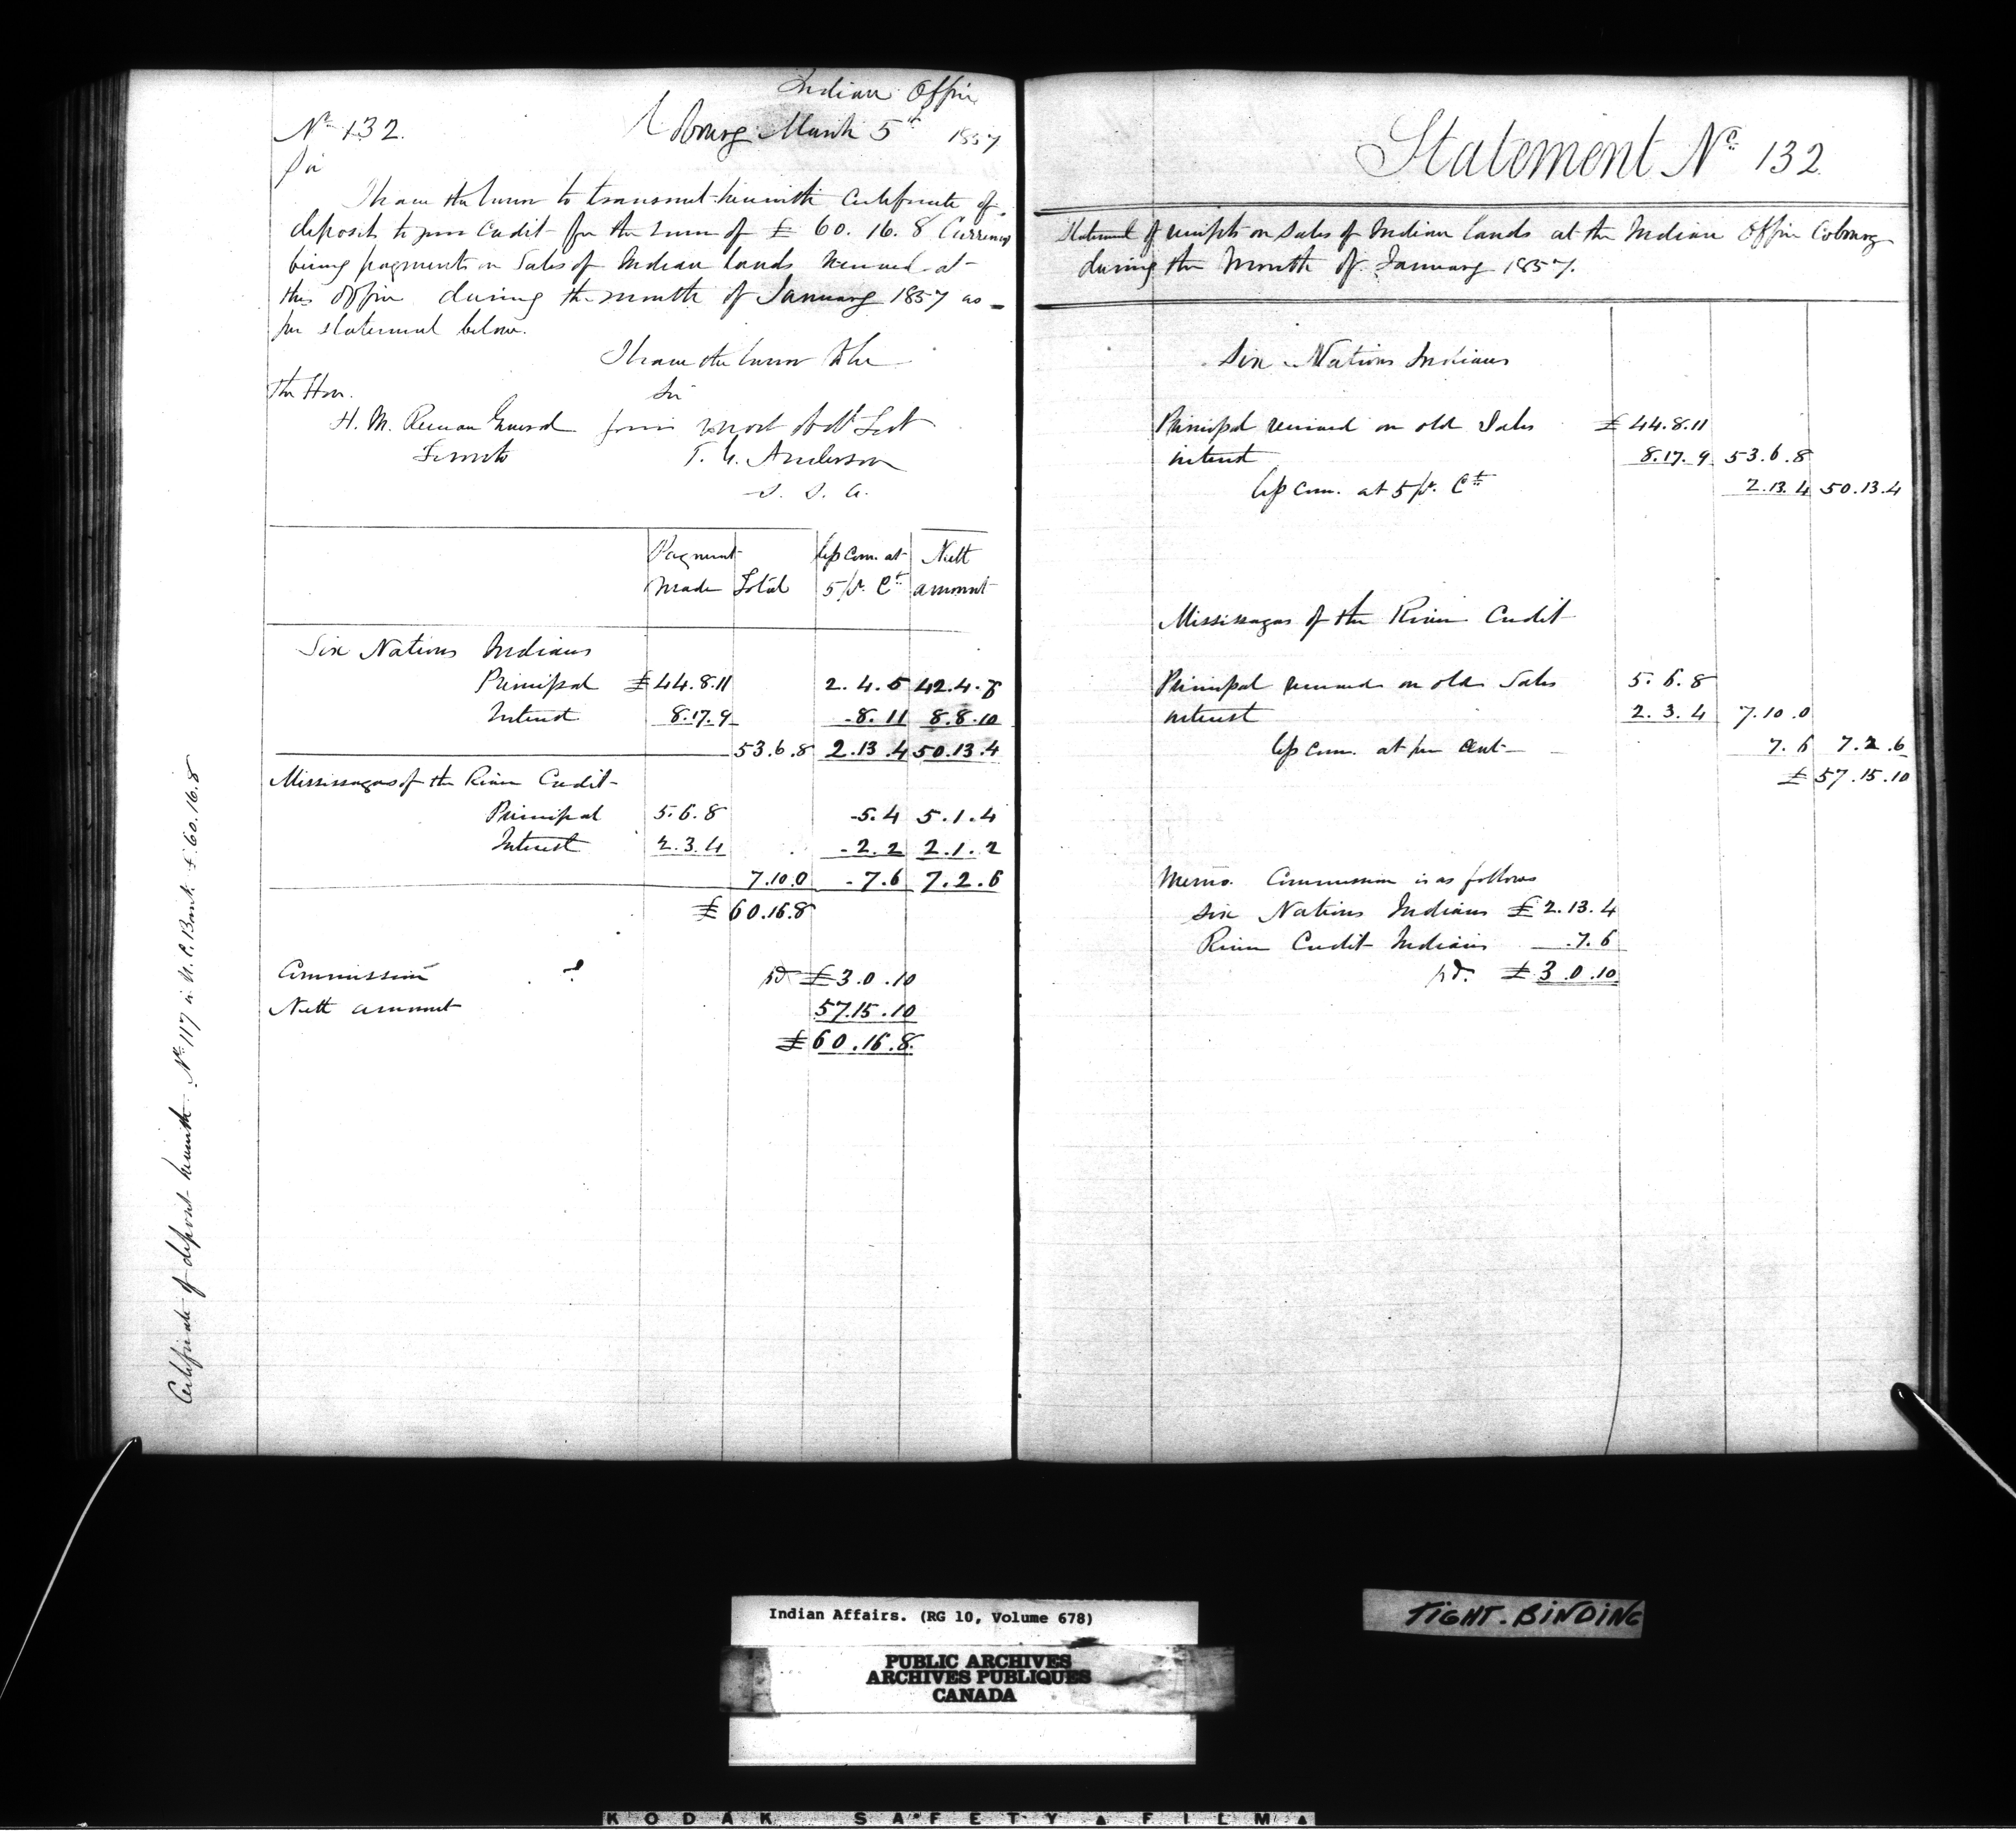 Indian Office
No 132. Cobourg March 5th 1857
Sir
I have the honor to transmit herewith Certificate of
deposit to your Credit for the sum of £ 60. 16. 8 Currency
being payments on Sales of Indian Lands received at
this Office during the month of January 1857 as
per statement below.
I have the honor to be
The Hon. Sir
H. M. Receiver General your most obdt Servt
Toronto T. G. Anderson
S. I. A.
Payment less com. at Nett
made Total 5 pr. Ct amount
Six Nations Indians
Principal £44.8.11 2. 4. 5 42.4.6
Interest 8.17.9 -8. 11 8.8.10
53.6.8 2.13.4 50.13.4
Mississagas of the River Credit
Principal 5.6.8 -5.4 5.1.4
Interest 2.3.4 -2.2 2.1.2
7.10.0 -7.6 7.2.6
£ 60.16.8
Commission £3.0.10
Nett amount 57.15.10
£60.16.8.
Certificate of deposit herewith No 117 in U.C. Bank £60.16.8
Statement No 132
Statement of receipts on sales of Indian Lands at the Indian Office Cobourg
during the Month of January 1857.
Six Nations Indians
Principal received on old Sales £ 44.8.11
interest 8.17.9 53.6.8
less com. at 5 pr. Ct 2.13.4 50.13.4
Mississagas of the River Credit
Principal received on old Sales 5.6.8
interest 2.3.4 7.10.0
less com. at per Cent 7.6 7.2.6
£ 57.15.10
Memo. Commission is as follows
Six Nations Indians £2.13.4
River Credit Indians .7.6
£3.0.10
Indian Affairs. (RG 10, Volume 678)
PUBLIC ARCHIVES
ARCHIVES PUBLIQUES
CANADA
TIGHT-BINDING
KODAK SAFETY FILM